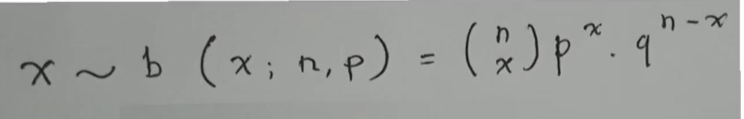 x ~ b (x; n, p) = (n x) p^x · q^(n-x)